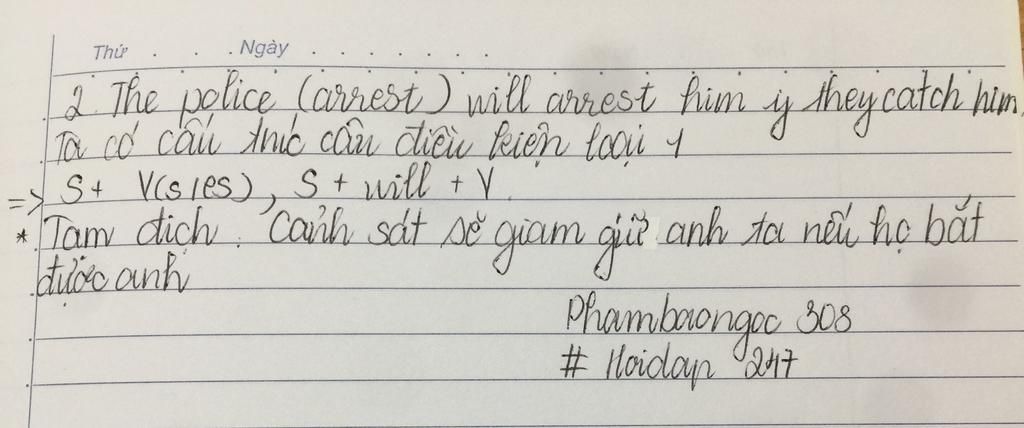 Thứ . . . . Ngày . . . . . . .
2. The police (arrest) will arrest him if they catch him.
Ta có cấu thức câu điều kiện loại 1
=> S + V(s/es), S + will + V.
* Tạm dịch: Cảnh sát sẽ giam giữ anh ta nếu họ bắt
được anh
Phambaongoc 308
# Hoidap 247